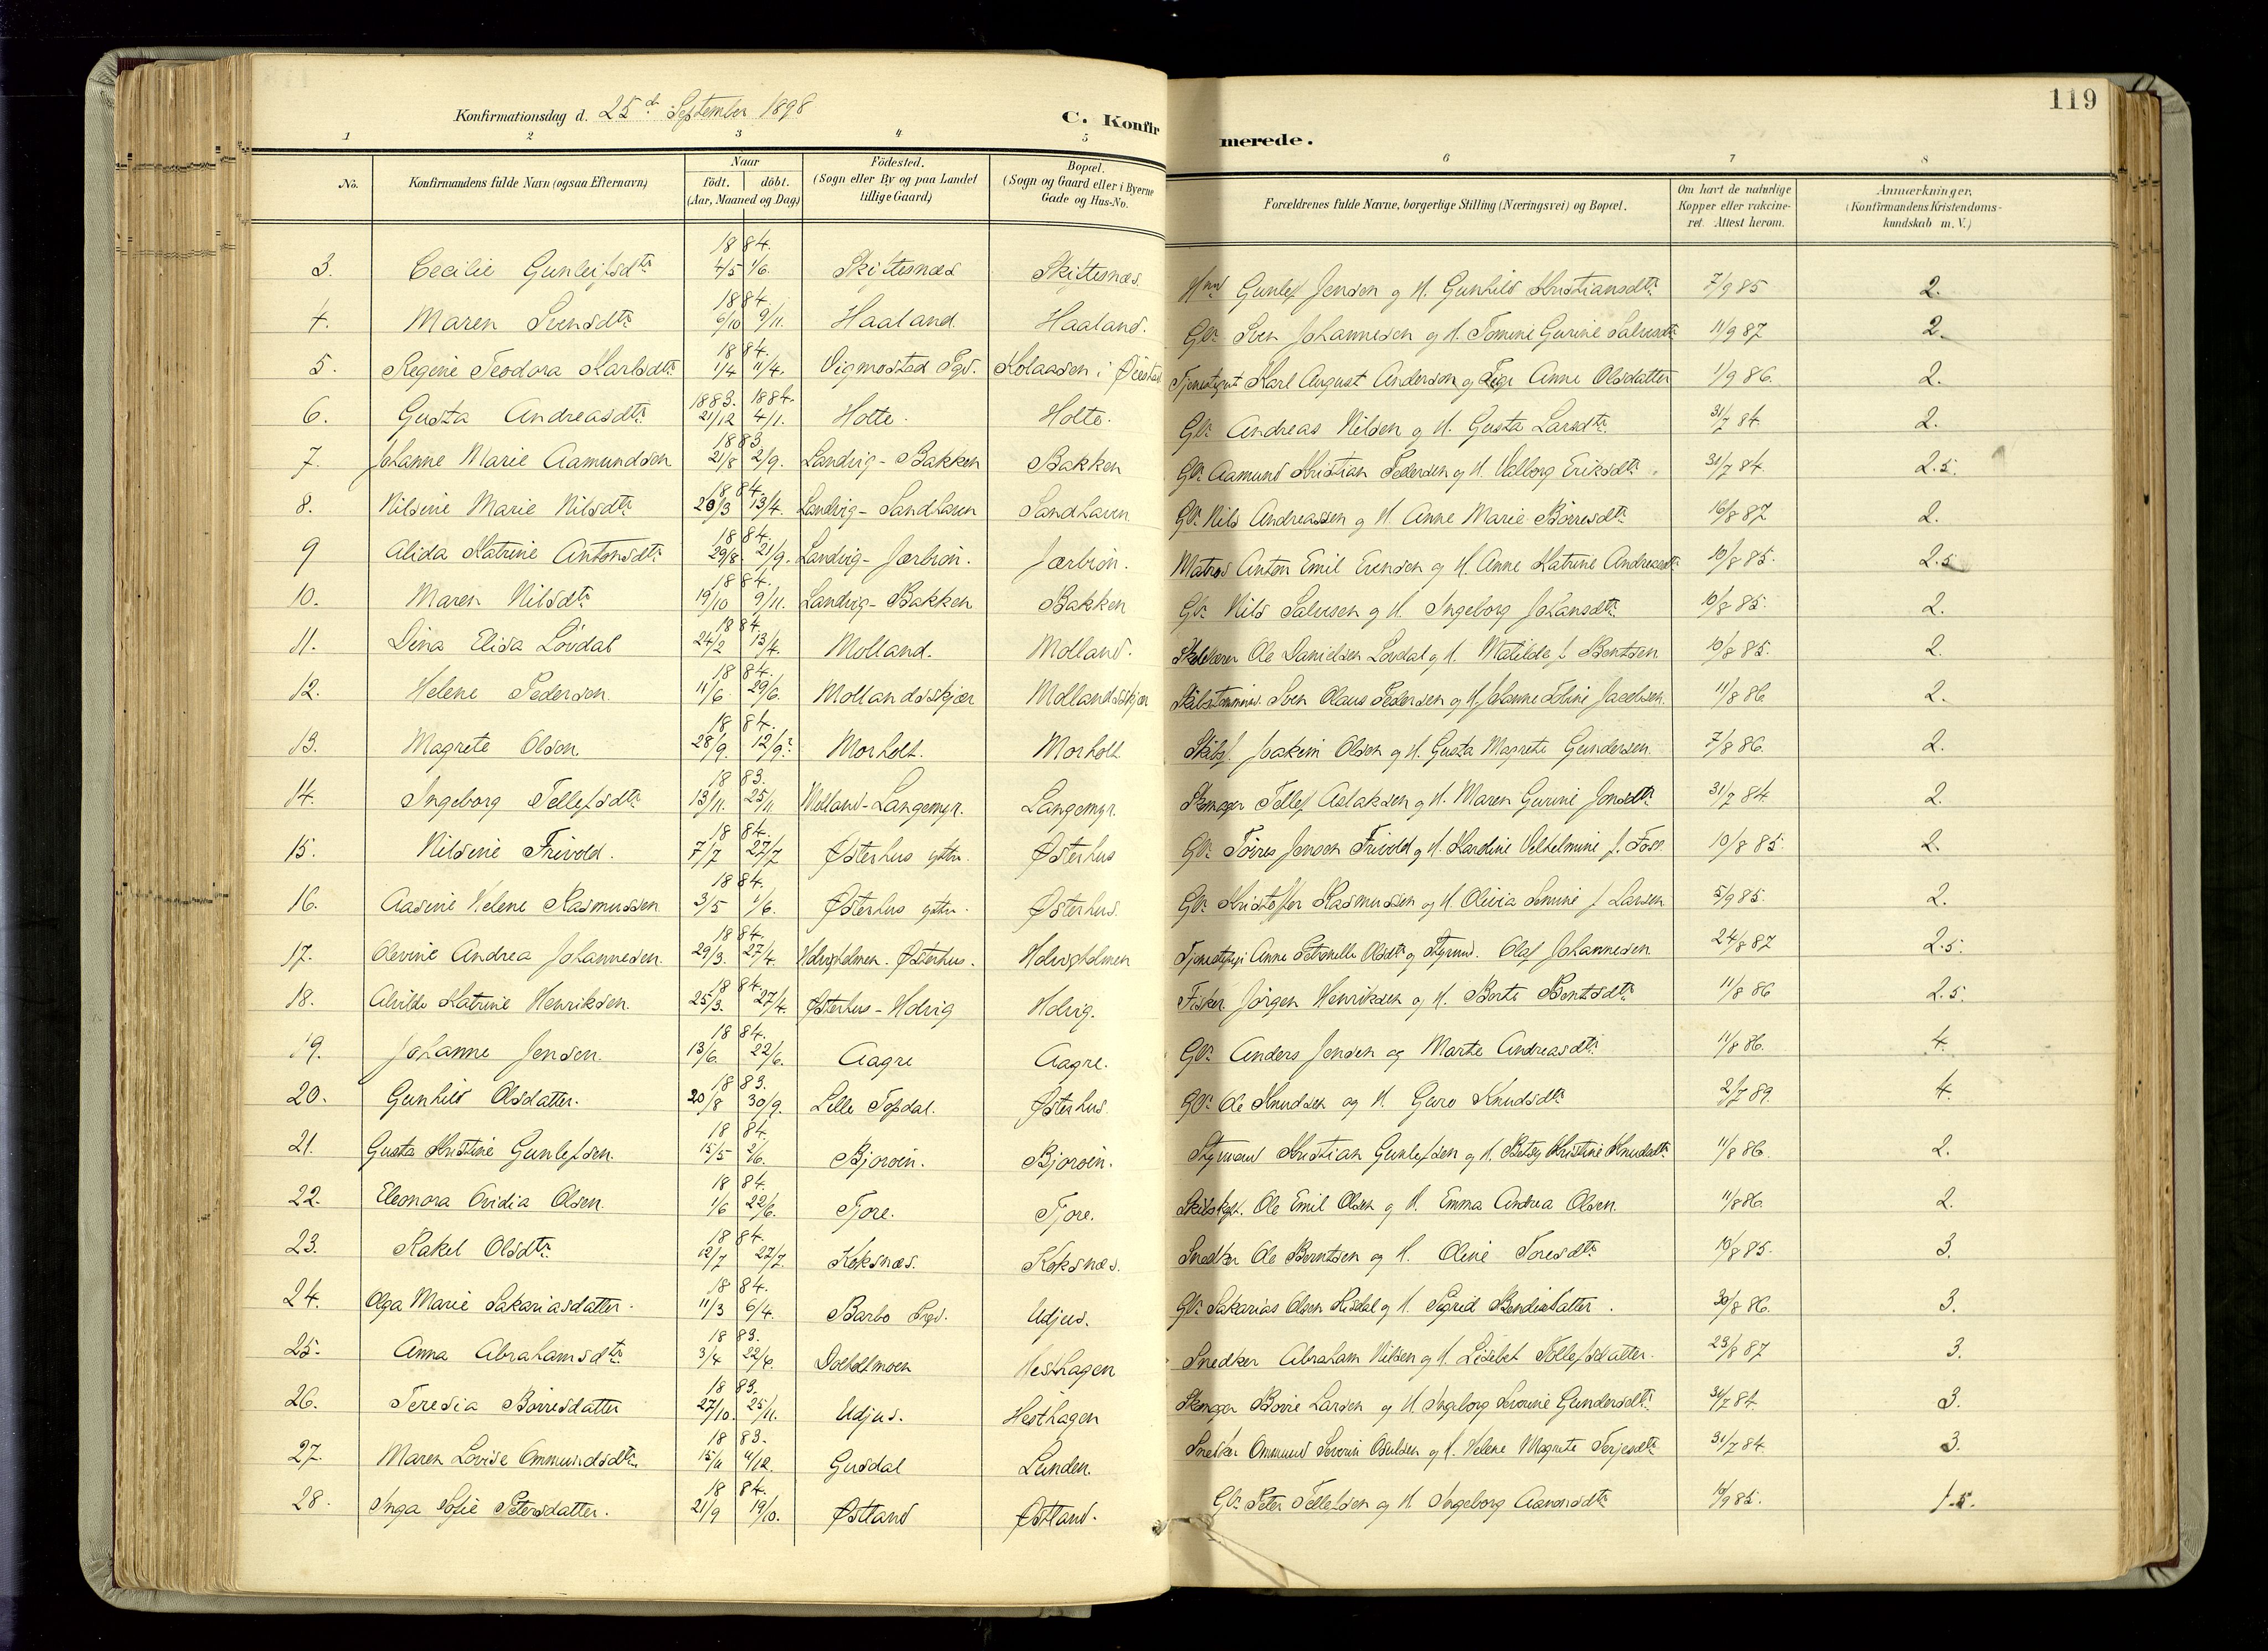 119
Konfirmationsdag d. 25de September 1898
C. Konfirmerede.
1 2 3 4 5 6 7 8
No. | Konfirmandens fulde Navn (ogsaa Efternavn) | Naar født. döbt. (Aar, Maaned og Dag) | Födested. (Sogn eller By og paa Landet tillige Gaard) | Bopæl. (Sogn og Gaard eller i Byerne Gade og Hus-No. | Forældrenes fulde Navne, borgerlige Stilling (Næringsvei) og Bopæl. | Om havt de naturlige Kopper eller vakcineret. Attest herom. | Anmærkninger, (Konfirmandens Kristendomskundskab m. V.)
3. Cecilie Gunleifsdtr 1884. 4/5 1/6. Skiftesnæs Skiftesnæs. Gunlef Jensen og H. Gunhild Kristiansdtr 7/9 85 2.
4. Maren Svensdtr 1884. 6/10 9/11. Haaland. Haaland. Gbr. Sven Johannesen og H. Tomine Gurine Salvesdtr 11/9 87 2.
5. Regine Teodora Karlsdtr 1884. 1/4 11/4. Vigmostad Pgd. Kolaasen i Øiestad Karl August Andersen og Anne Olsdatter 1/9 86. 2.
6. Gusta Andreasdtr 1883. 1884. 21/12 4/1. Holte. Holte. Gbr. Andreas Nilsen og H. Gusta Larsdtr 31/7 84. 2.
7. Johanne Marie Aamundsen 1883. 21/8 2/9. Landvig - Bakken Bakken Gbr. Aamund Kristian Pedersen og H. Valborg Eriksdtr 31/7 84. 2.5.
8. Nilsine Marie Nilsdtr 1884. 20/3 13/4. Landvig - Sandhaven Sandhaven Gbr. Nils Andreassen og H. Anne Marie Börresdtr 16/8 87 2.
9 Alida Katrine Antonsdtr 1884. 29/8. 21/9. Landvig - Jærbrön. Jærbrön. Matros Anton Emil Evensen og H. Anne Katrine Andreasdtr 10/8 85. 2.5
10. Maren Nilsdtr 1884. 19/10 9/11. Landvig - Bakken Bakken Gbr. Nils Salvesen og H. Ingeborg Johansdtr 10/8 85. 2.
11. Dina Elisa Lövdal 1884. 24/2 13/4. Molland. Molland. Ole Danielsen Lövdal og H. Matilde f. Bentsen 10/8 85. 2.
12. Helene Pedersen 1884. 11/6. 29/6. Mollandsskjær Mollandsskjær Skibstömmerm. Sven Olaus Pedersen og H. Johanne Jacobsen. 11/8 86 2.
13. Magrete Olsen 1884. 28/9. 12/9? Morholt. Morholt. Skibsf. Joakim Olsen og H. Gusta Magrete Gundersen. 7/8 86. 2.
14. Ingeborg Tellefsdtr 1883. 13/11. 25/11 Molland - Langemyr. Langemyr. Skomager Tellef Aslaksen og H. Maren Gurine Jonsdtr 31/7 84 2.
15. Nilsine Frivold. 1884. 7/7 27/7 Østerhus yttre. Østerhus Gbr. Törres Jensen Frivold og H. Kardine Velhelmine f. Foss 10/8 85. 2.
16. Aasine Helene Rasmussen 1884. 3/5 1/6. Østerhus yttre. Østerhus. Gbr. Kristoffer Rasmussen og H. Olivia Semine f. Larsen 5/9 85. 2.
17. Olevine Andrea Johannesen. 1884. 29/3. 27/4. Holvigholmen. Østerhus. Holvigholmen Anne Petronelle Olsdtr og Styrmd. Olaf Johannesen. 24/8 87 2.5.
18. Alvilde Katrine Henriksen. 1884. 25/3. 27/4. Østerhus - Holvig Holvig. Fisker Jörgen Henriksen og H. Berte Bentsdtr 11/8 86 2.5.
19. Johanne Jensen. 1884. 13/6. 22/6. Aagre Aagre. Gbr. Anders Jensen og Marte Andreasdtr 11/8 86. 4.
20. Gunhild Olsdatter. 1883. 20/8 30/9. Lille Topdal. Østerhus. Gbr. Ole Knudsen og H. Guro Knudsdtr 2/7 89. 4.
21. Gusta Kristine Gunlefsen. 1884. 15/5 2/6. Bjoroen. Bjoroen. Styrmand Kristian Gunlefsen og H. Betsy Kristine Knudsdtr 11/8 86. 2.
22. Eleonora Ovidia Olsen. 1884. 1/6 22/6. Fjore. Fjore. Ole Emil Olsen og H. Emma Andrea Olsen. 11/8 86. 2.
23. Rakel Olsdtr 1884. 12/7 27/7. Koksnæs. Koksnæs. Snedker Ole Berntsen og H. Oline Toresdtr 10/8 85. 3.
24. Olga Marie Sakariasdatter. 1884. 11/3 6/4. Barbo Prgd. Udjus. Gbr. Sakarias Olsen Hisdal og H. Sigrid Bendixdatter. 30/8 86. 3.
25. Anna Abrahamsdtr 1883. 3/4 22/4. Doeholmoen Hesthagen Snedker Abraham Nilsen og H. Lisebet Tollefsdatter. 23/8 87 3.
26. Teresia Börresdatter 1883. 27/10. 25/11. Udjus. Hesthagen Skomager Börre Larsen og H. Ingeborg Severine Gundersdtr 31/7 84. 3.
27. Maren Lovise Ommundsdtr. 1883. 15/11 4/12. Gusdal Lunden. Snedker Ommund Severin Osulsen og H. Helene Magrete Terjesdtr 31/7 84. 3.
28. Inga Sofie Petersdatter. 1884. 21/9 19/10. Østland Østland. Gbr. Peter Tellefsen og H. Ingeborg Aanonsdtr 10/9 85. 1.5.